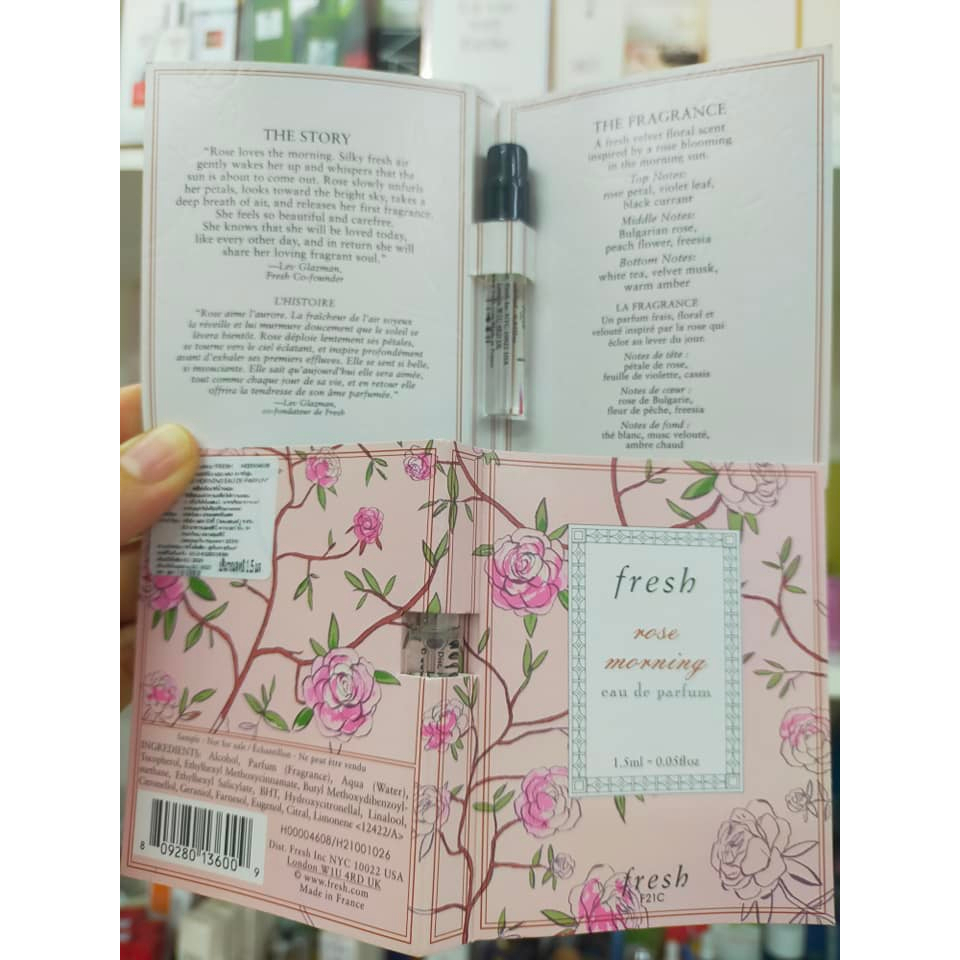 THE STORY
"Rose loves the morning. Silky fresh air
gently wakes her up and whispers that the
sun is about to come out. Rose slowly unfurls
her petals, looks toward the bright sky, takes a
deep breath of air, and releases her first fragrance.
She feels so beautiful and carefree.
She knows that she will be loved today,
like every other day, and in return she will
share her loving fragrant soul."
—Lev Glazman,
Fresh Co-founder
L'HISTOIRE
"Rose aime l'aurore. La fraîcheur de l'air soyeux
la réveille et lui murmure doucement que le soleil se
lèvera bientôt. Rose déploie lentement ses pétales,
se tourne vers le ciel éclatant, et inspire profondément
avant d'exhaler ses premiers effluves. Elle se sent si belle,
si insouciante. Elle sait qu'aujourd'hui elle sera aimée,
tout comme chaque jour de sa vie, et en retour elle
offrira la tendresse de son âme parfumée."
—Lev Glazman,
co-fondateur de Fresh
THE FRAGRANCE
A fresh velvet floral scent
inspired by a rose blooming
in the morning sun.
Top Notes:
rose petal, violet leaf,
black currant
Middle Notes:
Bulgarian rose,
peach flower, freesia
Bottom Notes:
white tea, velvet musk,
warm amber
LA FRAGRANCE
Un parfum frais, floral et
velouté inspiré par la rose qui
éclot au lever du jour.
Notes de tête :
pétale de rose,
feuille de violette, cassis
Notes de cœur :
rose de Bulgarie,
fleur de pêche, freesia
Notes de fond :
thé blanc, musc velouté,
ambre chaud
Fresh Inc NYC 10022 USA
W1U 4RD UK
FRESH H00004608
MORNING EAU DE PARFUM
1.5
Sample - Not for sale / Échantillon - Ne peut être vendu
INGREDIENTS: Alcohol, Parfum (Fragrance), Aqua (Water),
Tocopherol, Ethylhexyl Methoxycinnamate, Butyl Methoxydibenzoyl-
methane, Ethylhexyl Salicylate, BHT, Hydroxycitronellal, Linalool,
Citronellol, Geraniol, Farnesol, Eugenol, Citral, Limonene <12422/A>
H00004608/H21001026
Dist. Fresh Inc NYC 10022 USA
London W1U 4RD UK
© www.fresh.com
Made in France
8 09280 13600 9
fresh
rose
morning
eau de parfum
1.5ml ℮ 0.05floz
fresh
F21C